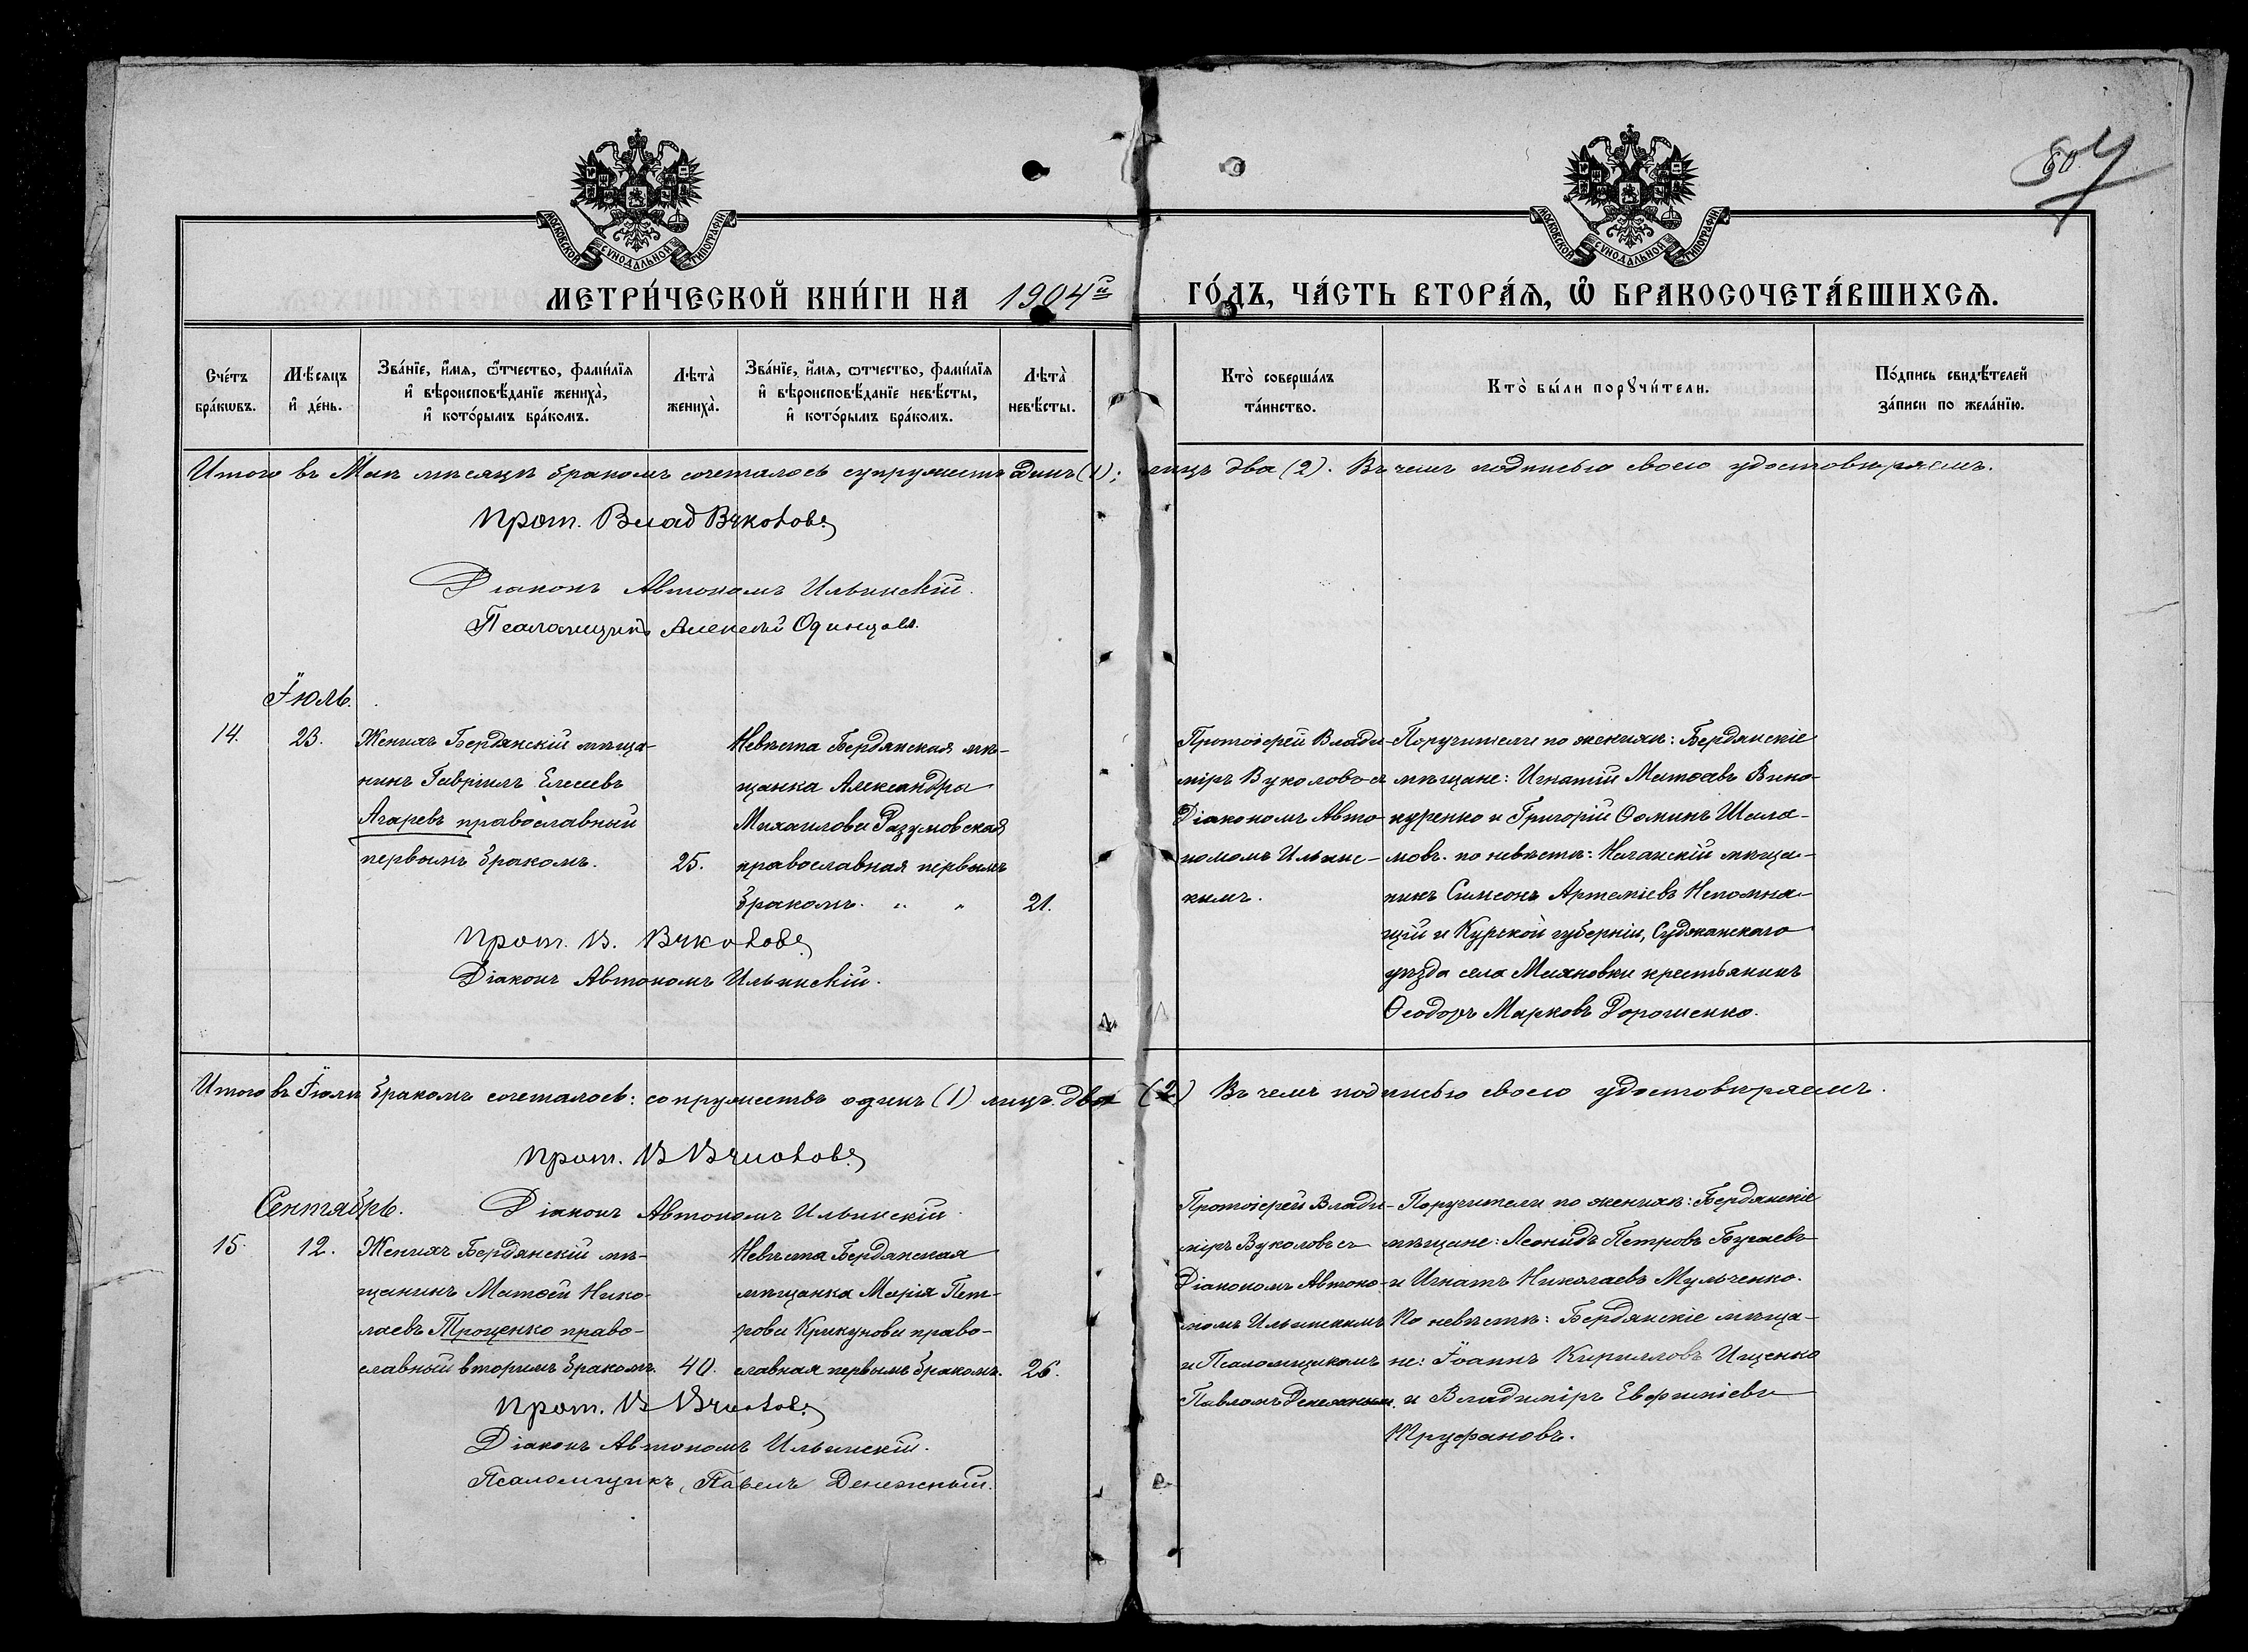 60
МОСКОВСКОЙ СѴНОДАЛЬНОЙ ТИПОГРАФІИ
МОСКОВСКОЙ СѴНОДАЛЬНОЙ ТИПОГРАФІИ
МЕТРИ́ЧЕСКОЙ КНИ́ГИ НА 1904й ГО́ДЪ, ЧА́СТЬ ВТОРА́Ѧ, Ѽ БРАКОСОЧЕТА́ВШИХСѦ.
Сче́тъ
бра́кѡвъ.
Мѣ́сяцъ
и҆ де́нь.
Зва́нїе, и҆́мя, ѻ҆́тчество, фами́лїя
и҆ вѣроисповѣ́данїе жениха̀,
и҆ кото́рымъ бра́комъ.
Лѣта̀
жениха̀.
Зва́нїе, и҆́мя, ѻ҆́тчество, фами́лїя
и҆ вѣроисповѣ́данїе невѣ́сты,
и҆ кото́рымъ бра́комъ.
Лѣта̀
невѣ́сты.
Кто̀ соверша́лъ
та́инство.
Кто̀ бы́ли порꙋчи́тели.
По́дпись свидѣ́телей
за́писи по жела́нїю.
Итого въ Маѣ мѣсяцѣ бракомъ сочеталось супружествъ одинъ (1); лицъ два (2). Въ чемъ подписью своею удостовѣряемъ.
Прот. Влад Вуколовъ
Діаконъ Автономъ Ильинскій.
Псаломщикъ Алексѣй Одинцовъ.
Іюль.
14.
23.
Женихъ Бердянскій мѣща-
нинъ Гавріилъ Елисеевъ
Агаревъ православный
первымъ бракомъ.
25.
Невѣста Бердянская мѣ-
щанка Александра
Михаилова Разумовская
православная первымъ
бракомъ. " "
21.
Протоіерей Влади-
міръ Вуколовъ съ
Діакономъ Авто-
номомъ Ильинс-
кимъ.
Поручители по женихѣ: Бердянскіе
мѣщане: Игнатій Матѳеевъ Вино-
куренко и Григорій Ѳоминъ Шала-
мовъ. по невѣстѣ: Ногайскій мѣща-
нинъ Симеонъ Артеміевъ Непомня-
щій и Курской губерніи, Суджанскаго
уѣзда села крестьянинъ
Ѳеодоръ Марковъ Дорошенко.
Прот. В. Вуколовъ
Діаконъ Автономъ Ильинскій.
Итого въ Іюлѣ бракомъ сочеталось: сопружествъ одинъ (1) лицъ два (2) Въ чемъ подписью своею удостовѣряемъ.
Прот. В Вуколовъ
Діаконъ Автономъ Ильинскій.
Сентябрь.
15.
12.
Женихъ Бердянскій мѣ-
щанинъ Матѳей Нико-
лаевъ Троценко право-
славный вторымъ бракомъ.
40.
Невѣста Бердянская
мѣщанка Марія Пет-
рова Крикунова право-
славная первымъ бракомъ.
26.
Протоіерей Влади-
міръ Вуколовъ съ
Діакономъ Автоно-
момъ Ильинскимъ
и Псаломщикомъ
Павломъ Денежнымъ.
Поручители по женихѣ: Бердянскіе
мѣщане: Леонидъ Петровъ Бугаевъ
и Игнатъ Николаевъ Мульченко.
По невѣстѣ: Бердянскіе мѣща-
не: Іоаннъ Кирилловъ Ищенко
и Владиміръ Евфиміевъ
Труфановъ.
Прот. В Вуколовъ
Діаконъ Автономъ Ильинскій.
Псаломщикъ, Павелъ Денежный.